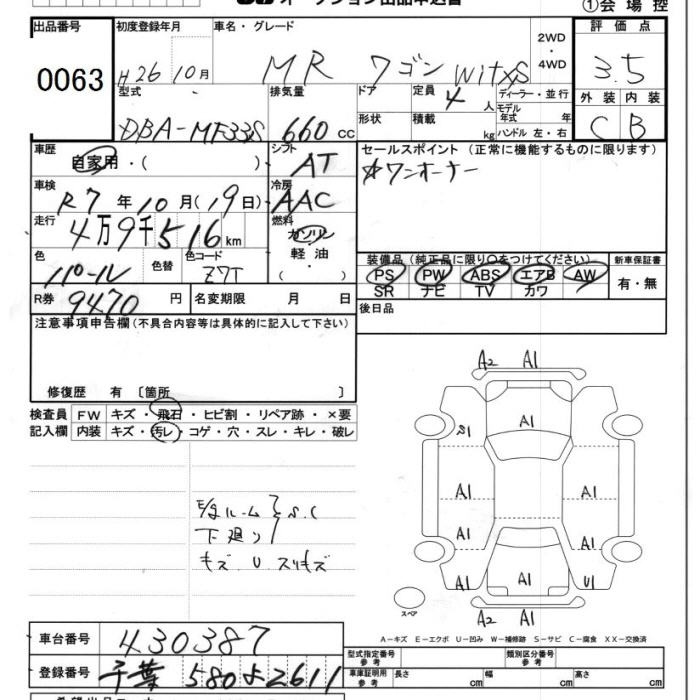 オークション出品申込書
①会場控
出品番号
0063
初度登録年月
H26 10月
車名・グレード
MR ワゴン witxs
2WD・4WD
評価点
3.5
型式
DBA-MF33S
排気量
660 cc
ドア
形状
定員 4 人
積載 kg
ディーラー・並行
モデル年式 年
ハンドル 左・右
外装 内装
C B
車歴
自家用・( )
シフト
AT
セールスポイント (正常に機能するものに限ります)
☆ワンオーナー
車検
R7年10月(19日)
冷房
AAC
走行
4万9千516km
燃料
ガソリン
軽油
・( )
色
パール
色替
色コード
Z7T
装備品 (純正品に限り○をつけてください)
PS PW ABS エアB AW
SR ナビ TV カワ
新車保証書
有・無
R券
9470円
名変期限 月 日
後日品
注意事項申告欄(不具合内容等は具体的に記入して下さい)
修復歴 有 〔箇所 〕
検査員 FW キズ・飛石・ヒビ割・リペア跡・×要
記入欄 内装 キズ・汚レ・コゲ・穴・スレ・キレ・破レ
ルーム S.C
下廻り
キズ U スリキズ
A2 A1
S1 A1
A1 A1
A1 A1
A1 A1 U1
A2 A1
スペア
A-キズ E-エクボ U-凹み W-補修跡 S-サビ C-腐食 XX-交換済
車台番号
430387
型式指定番号 参考
類別区分番号 参考
登録番号
千葉 580 よ 2611
車庫証明用 参考
長さ cm 幅 cm 高さ cm